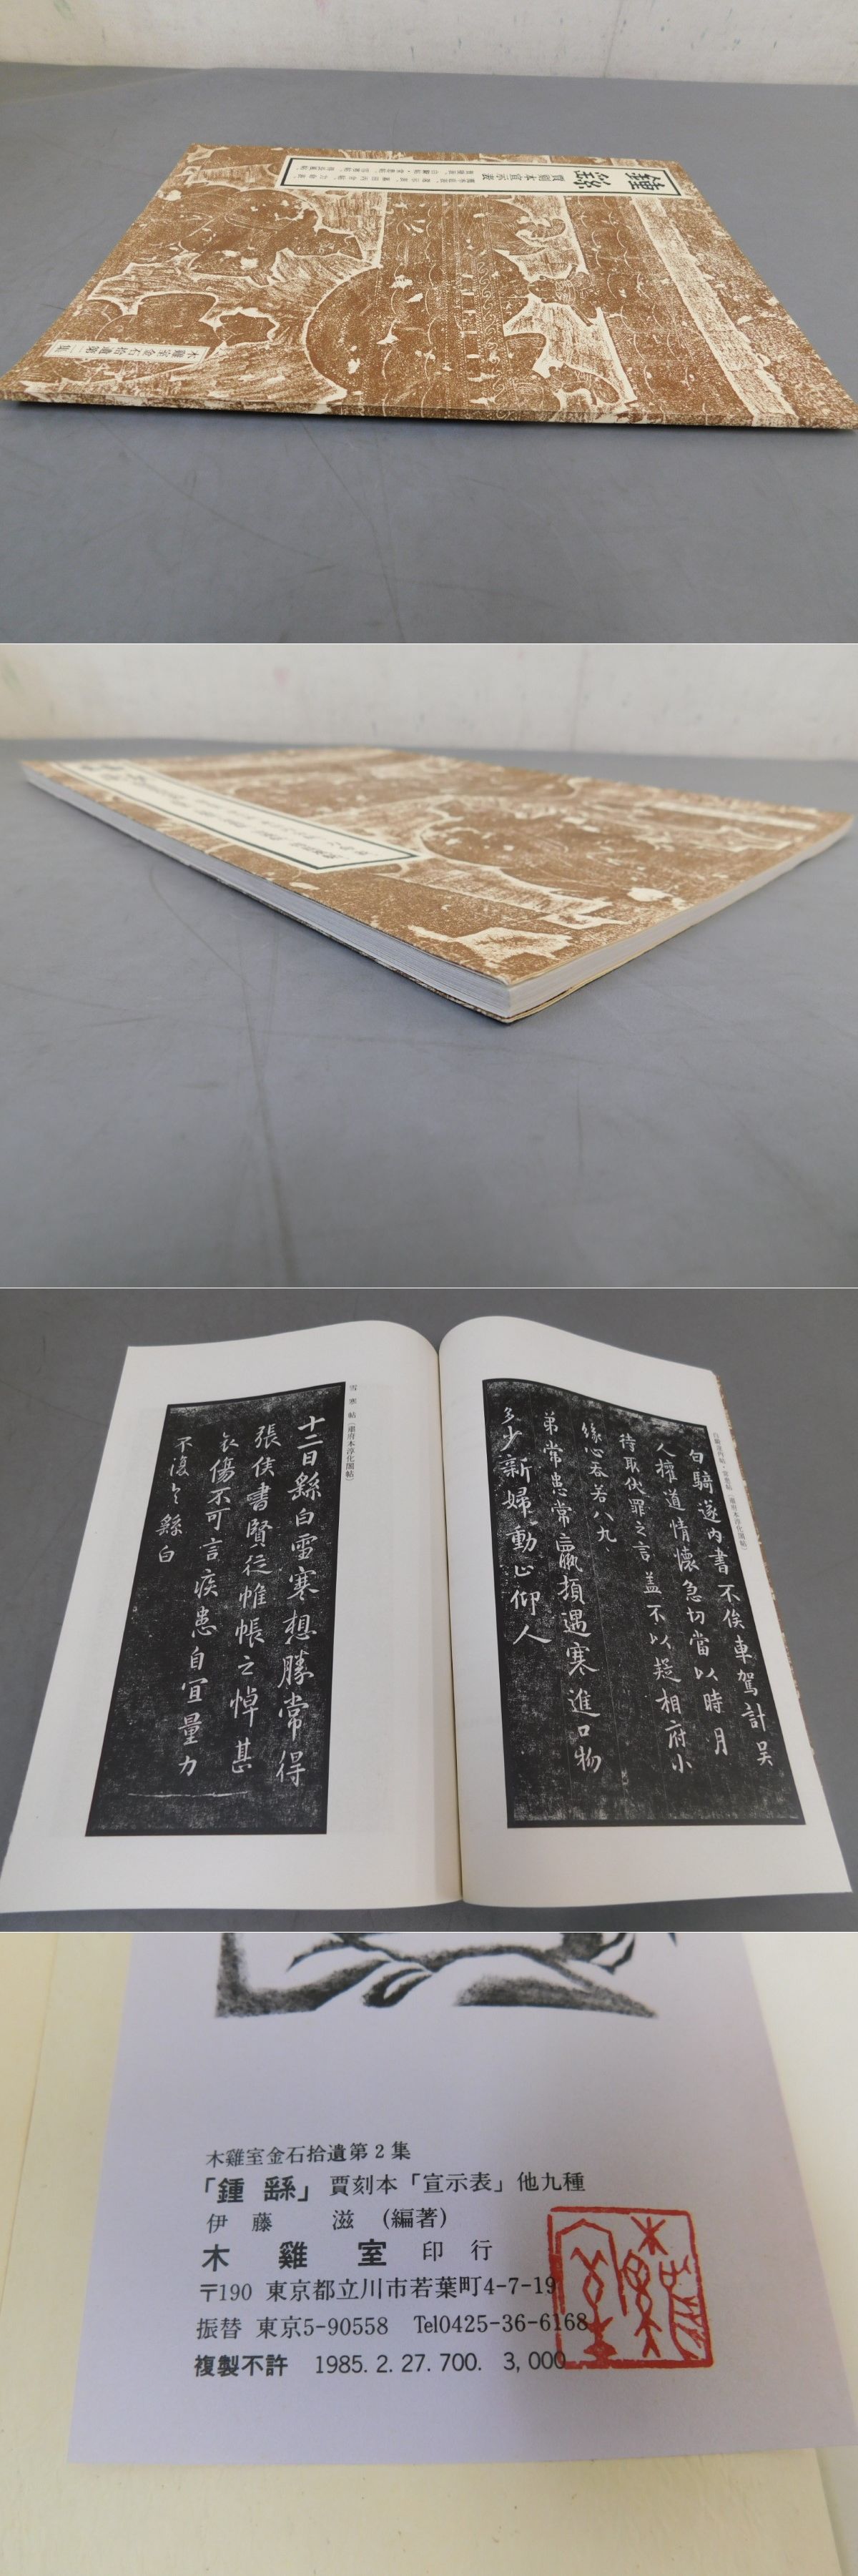 鍾繇
賈刻本宣示表
木雞室金石拾遺第二集
白騎遂内書不俟車駕計吴
人權道情懷急切當以時月
待取伏罪之言盖不以疑相府小
緣心吞若八九
弟常患常羸頓遇寒進口物
多少新婦動止仰人
雪寒帖（肅府本淳化閣帖）
十二日繇白雪寒想勝常得
張侯書賢從帷帳之悼甚
哀傷不可言疾患自宜量力
不復具繇白
木雞室金石拾遺第2集
「鍾繇」賈刻本「宣示表」他九種
伊藤 滋 (編著)
木雞室 印行
〒190 東京都立川市若葉町4-7-19
振替 東京5-90558 Tel0425-36-6168
複製不許 1985. 2. 27. 700. 3,000